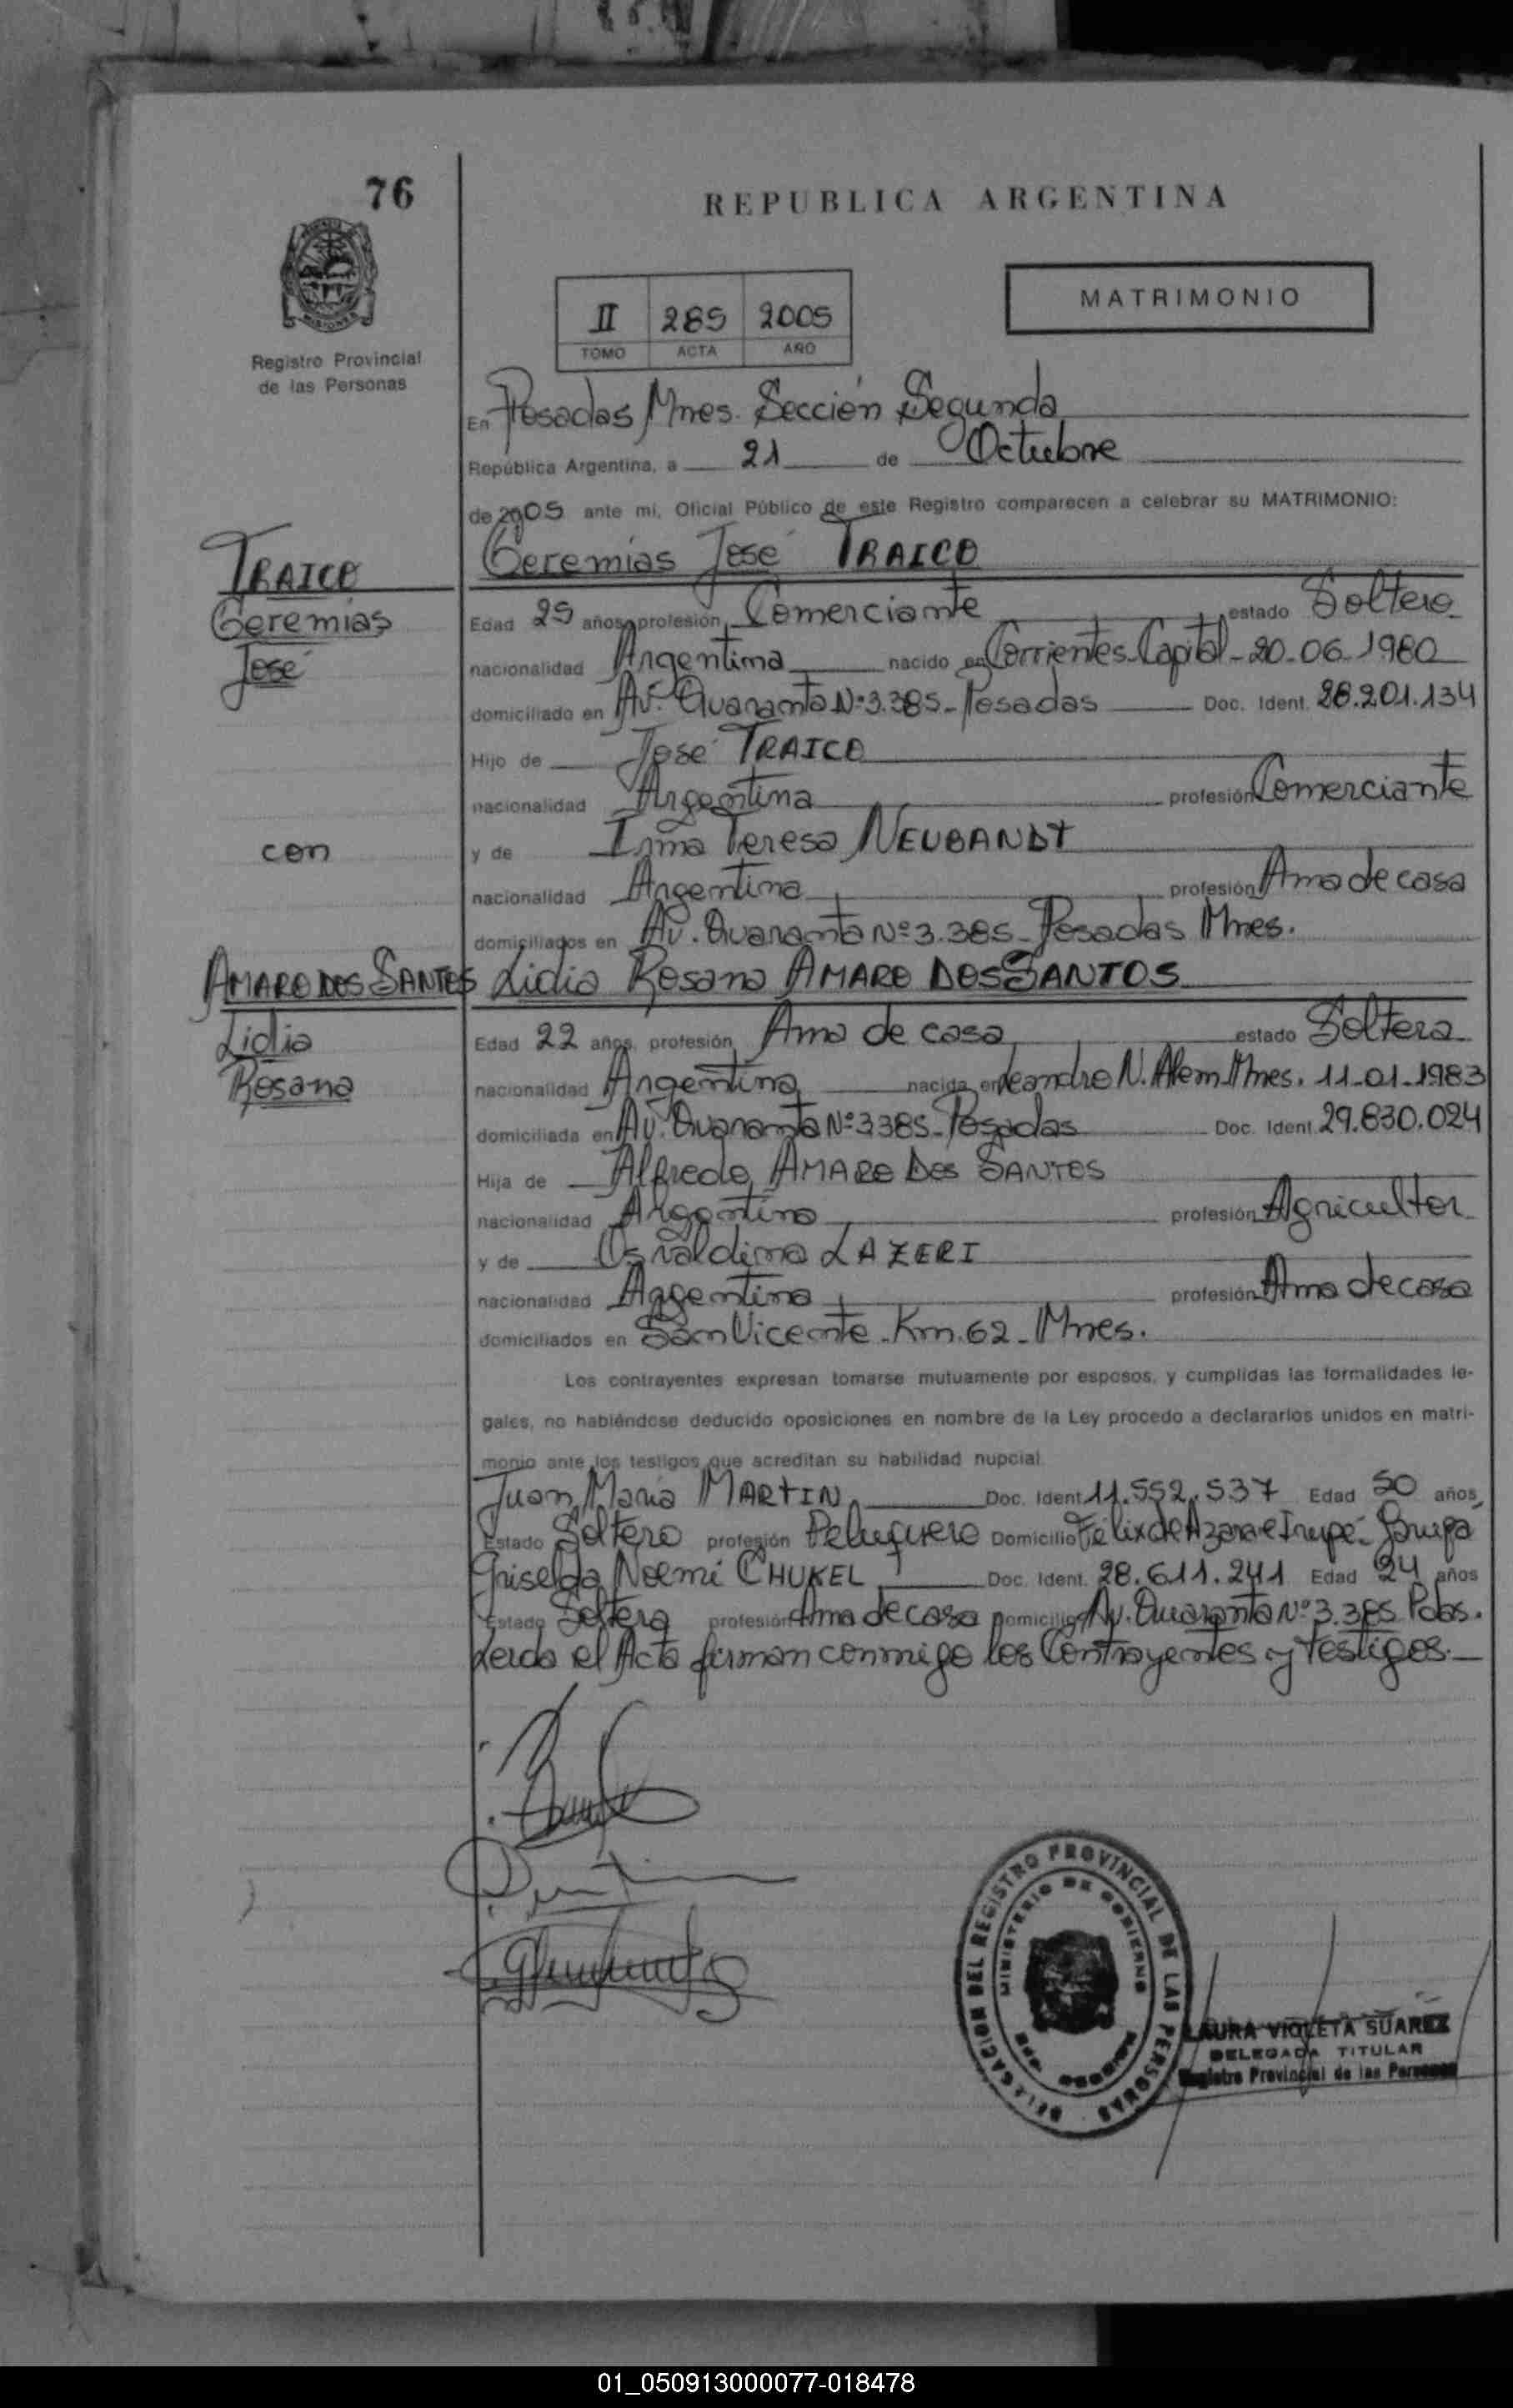 76
REPUBLICA ARGENTINA
MISIONES
Registro Provincial
de las Personas
II 285 2005
TOMO ACTA AÑO
MATRIMONIO
En Posadas Mnes. Sección Segunda
República Argentina, a 21 de Octubre
de 2005 ante mi, Oficial Público de este Registro comparecen a celebrar su MATRIMONIO:
TRAICO
Geremias
José
Geremias José TRAICO
Edad 25 años, profesión Comerciante estado Soltero
nacionalidad Argentina nacido en Corrientes-Capital-20-06-1980
domiciliado en Av. Quaranta Nº 3.385-Posadas Doc. Ident. 28.201.134
Hijo de José TRAICO
nacionalidad Argentina profesión Comerciante
con
y de Irma Teresa NEUBANDT
nacionalidad Argentina profesión Ama de casa
domiciliados en Av. Quaranta Nº 3.385-Posadas Mnes.
AMARO DOS SANTOS
Lidia
Rosana
Lidia Rosana AMARO DOS SANTOS
Edad 22 años, profesión Ama de casa estado Soltera
nacionalidad Argentina nacida en Leandro N. Alem Mnes. 11-01-1983
domiciliada en Av. Quaranta Nº 3385-Posadas Doc. Ident. 29.830.024
Hija de Alfredo AMARO DOS SANTOS
nacionalidad Argentino profesión Agricultor
y de Osvaldina LAZERI
nacionalidad Argentina profesión Ama de casa
domiciliados en San Vicente-Km.62-Mnes.
Los contrayentes expresan tomarse mutuamente por esposos, y cumplidas las formalidades le-
gales, no habiéndose deducido oposiciones en nombre de la Ley procedo a declararlos unidos en matri-
monio ante los testigos que acreditan su habilidad nupcial.
Juan Maria MARTIN Doc. Ident. 11.552.537 Edad 50 años,
Estado Soltero profesión Peluquero Domicilio Félix de Azara e Irupé-Garupá
Griselda Noemi CHUKEL Doc. Ident. 28.611.241 Edad 24 años
Estado Soltera profesión Ama de casa Domicilio Av. Quaranta Nº 3.385 Pdas.
Leida el Acta firman conmigo los Contrayentes y testigos.
DELEGACION DEL REGISTRO PROVINCIAL DE LAS PERSONAS
MINISTERIO DE GOBIERNO
MISIONES
LAURA VIOLETA SUAREZ
DELEGADA TITULAR
Registro Provincial de las Personas
01_050913000077-018478